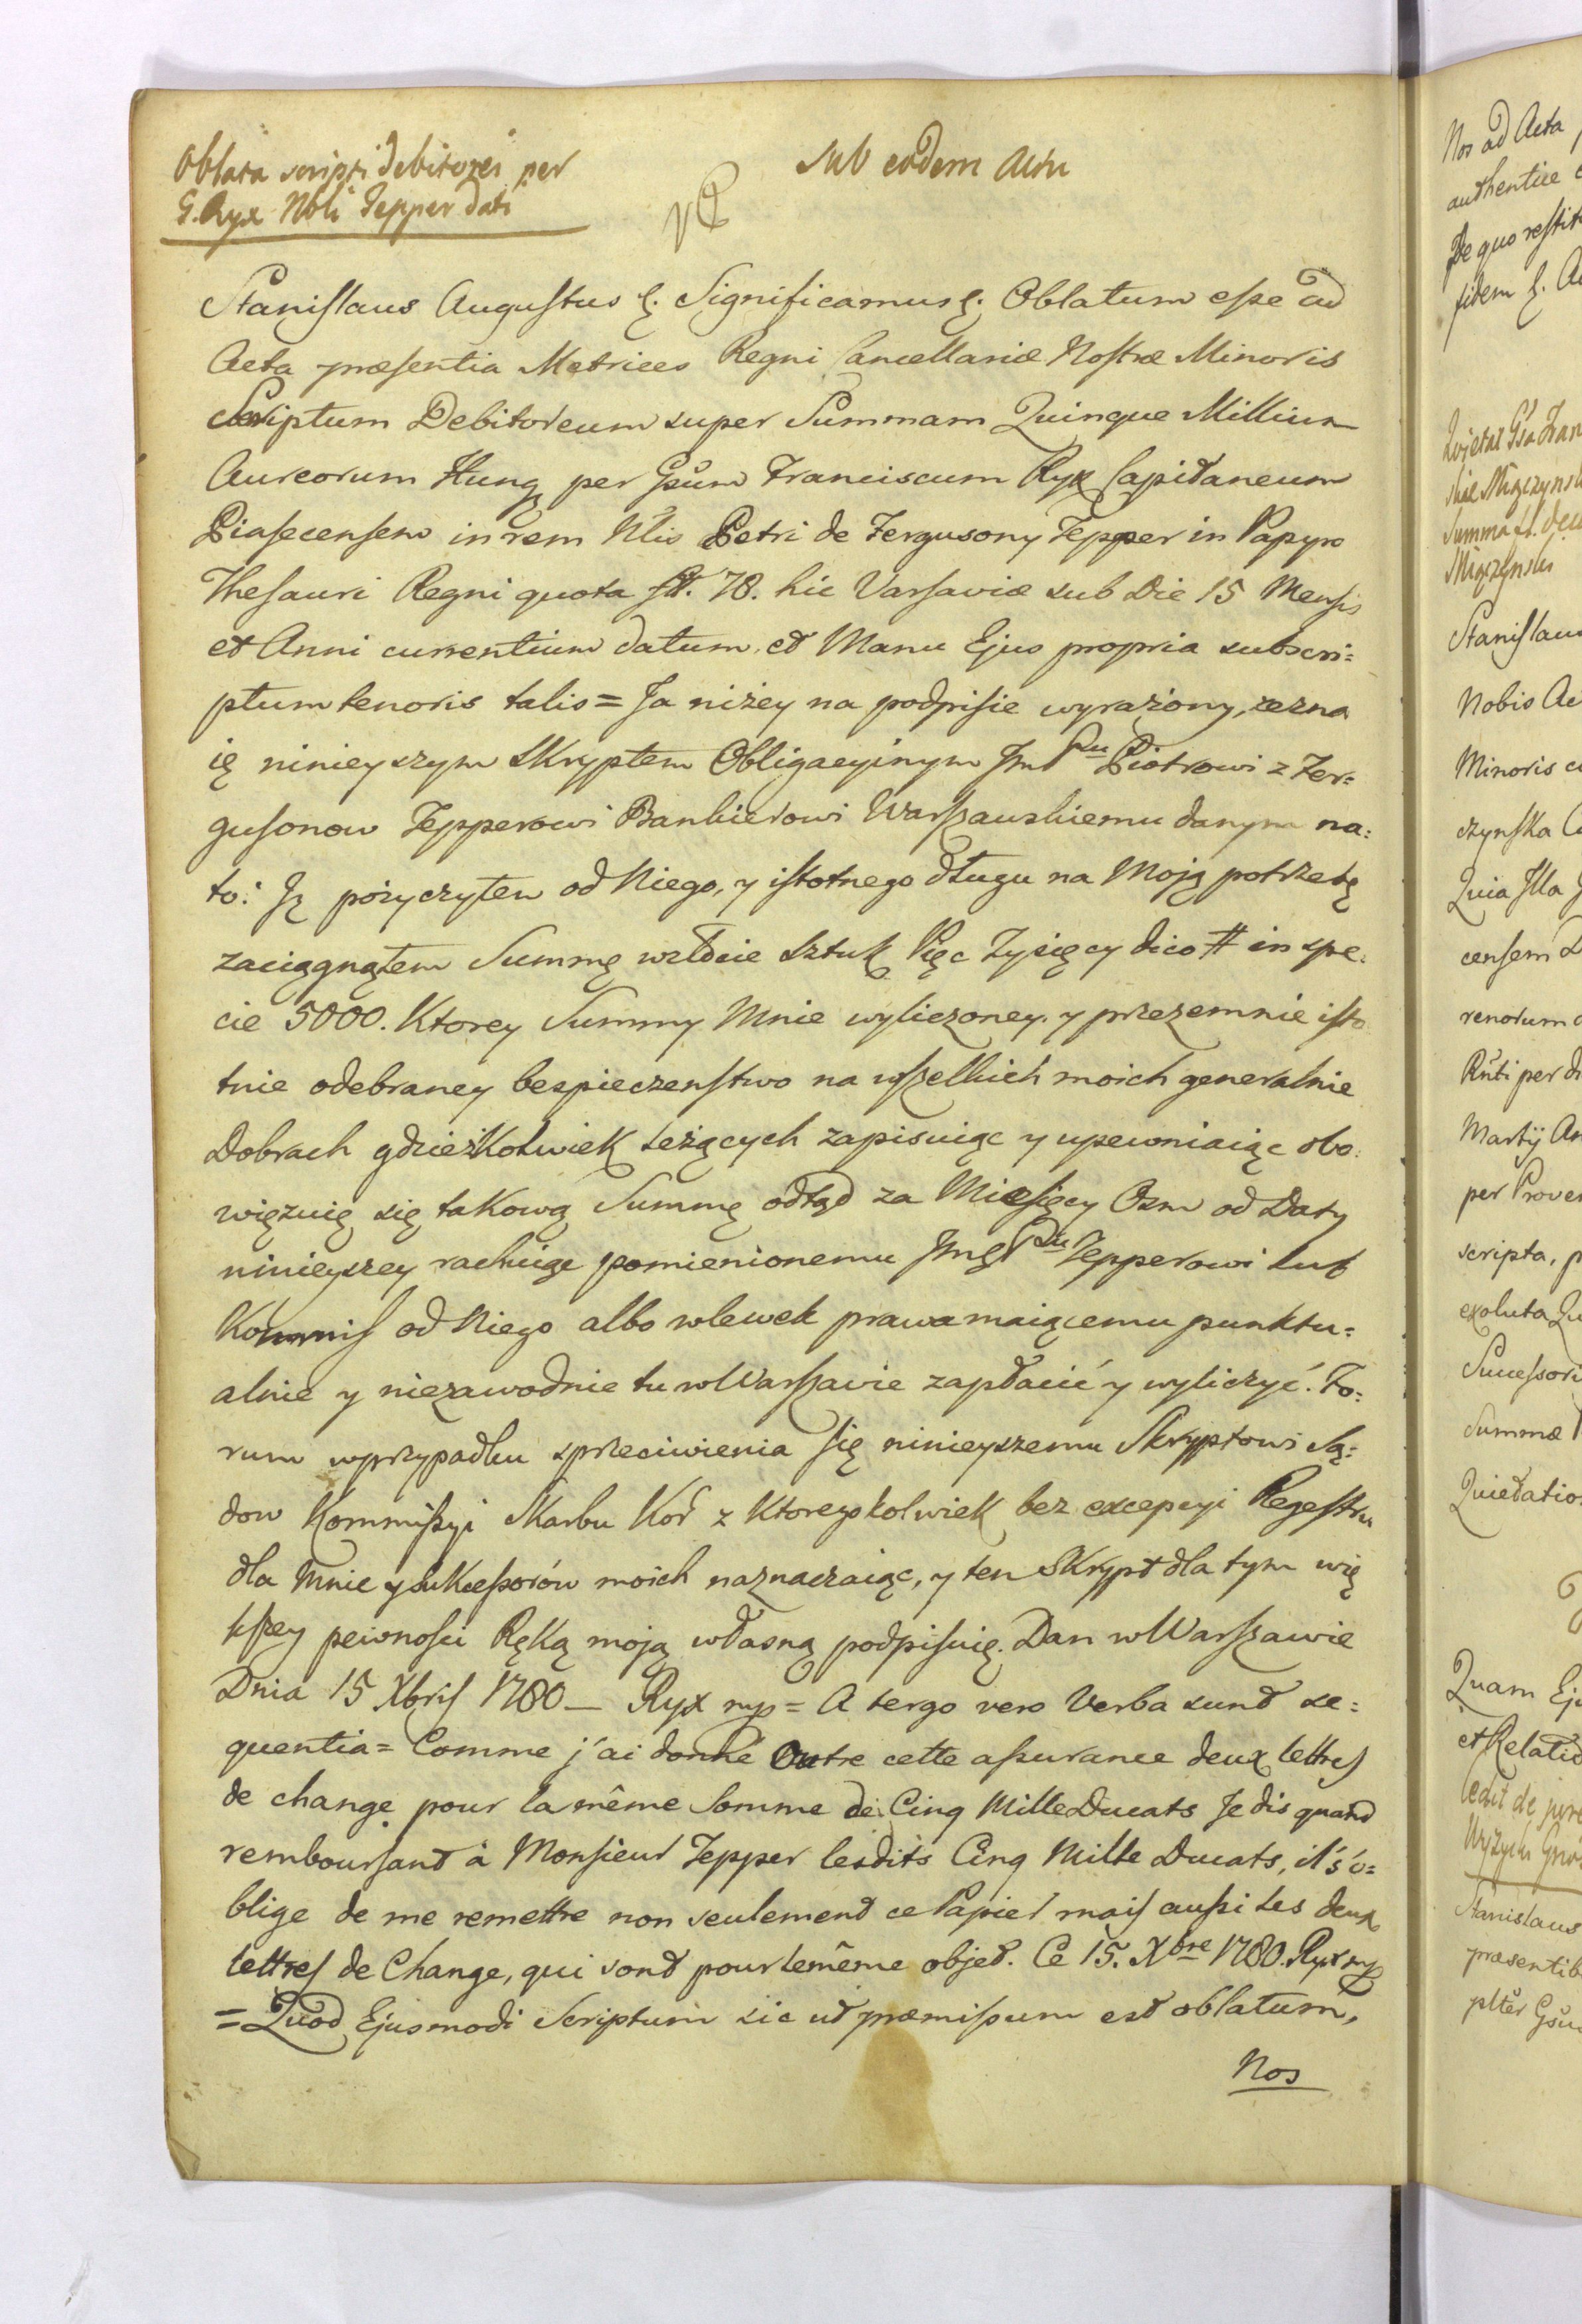 Oblata scripti debitorei per
G. Ryx Nbli Tepper dati
Sub eodem Actu
Stanislaus Augustus &. Significamus &. Oblatum esse ad
Acta præsentia Metrices Regni Cancellariæ Nostræ Minoris
Scriptum Debitoreum super Summam Quinque Millium
Aureorum Hung per Gsum Franciscum Ryx Capitaneum
Piasecensem in rem Nlis Petri de Fergusony Tepper in Papyro
Thesauri Regni quota fl. 78. hic Varsaviæ sub Die 15 Mensis
et Anni currentium datum, et Manu Ejus propria subscri=
ptum tenoris talis = Ja niżey na podpisie wyrażony, zezna
ię ninieyszym Skryptem Obligacyinym JmPnu Piotrowi z Fer=
gusonow Tepperowi Bankierowi Warszawskiemu danym na:
to: Jż pożyczyłem od Niego, y istotnego długu na Moją potrzebę
zaciągnąłem Summę w złocie Sztuk Pięc Tysięcy dico # in spe:
cie 5000. Ktorey Summy Mnie wyliczoney y przezemnie isto
tnie odebraney bespieczenstwo na wszelkich moich generalnie
Dobrach gdzieżkolwiek leżących zapisuiąc y upewniaiąc obo:
więzuię się takową Summę odtąd za Miesięcy Osm od Daty
ninieyszey rachuiąc pomienionemu JmgPnu Tepperowi lub
Kommis od Niego albo wlewek prawa maiącemu punktu=
alnie y niezawodnie tu w Warszawie zapłacić y wyliczyć. Fo=
rum w przypadku sprzeciwienia się ninieyszemu Skryptowi Są=
dow Kommissyi Skarbu Kor z ktoregokolwiek bez excepcyi Regestru
dla Mnie y Sukcessorów moich naznaczaiąc, y ten Skrypt dla tym wię
kszey pewnosci Ręką moją własną podpisuię. Dan w Warszawie
Dnia 15 Xbris 1780 — Ryx mp = A tergo vero Verba sunt se=
quentia = Comme j'ai donné Outre cette assurance deux lettres
de change pour la même Somme de Cinq Mille Ducats Je dis quand
remboursant à Monsieur Tepper lesdits Cinq Mille Ducats, il s'o=
blige de me remettre non seulement ce Papier mais aussi les deux
lettres de Change, qui sont pour le même objet. Ce 15. Xbre 1780. Ryx mp
= Quod Ejusmodi Scriptum sic ut præmissum est oblatum,
Nos
Nos ad Acta
authentice
De quo restit
fidem &.
Summa fl.
Stanislau
Nobis Ac
Minoris
czynska
Quia Illa
censem
renorum
Rnti per
Martij An
per Prove
scripta, p
exoluta Qu
Successori
Summæ
Quietatio
Quam Ej
et Relatio
Cedit de jure
Stanislaus
præsentib